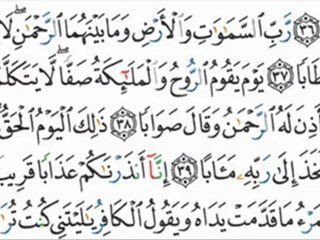 ﴿٣٦﴾ رَّبِّ السَّمَٰوَٰتِ وَالْأَرْضِ وَمَا بَيْنَهُمَا الرَّحْمَٰنِ ۖ لَا
طَابًا ﴿٣٧﴾ يَوْمَ يَقُومُ الرُّوحُ وَالْمَلَٰٓئِكَةُ صَفًّا ۖ لَّا يَتَكَلَّمُ
أَذِنَ لَهُ الرَّحْمَٰنُ وَقَالَ صَوَابًا ﴿٣٨﴾ ذَٰلِكَ الْيَوْمُ الْحَقُّ
تَّخَذَ إِلَىٰ رَبِّهِۦ مَـَٔابًا ﴿٣٩﴾ إِنَّآ أَنذَرْنَٰكُمْ عَذَابًا قَرِيبًا
مَرْءُ مَا قَدَّمَتْ يَدَاهُ وَيَقُولُ الْكَافِرُ يَٰلَيْتَنِي كُنتُ تُرَٰ